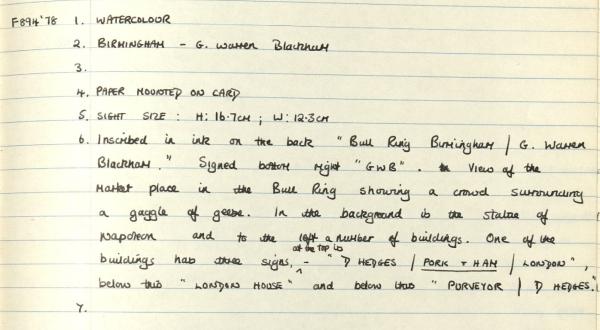 F894'78 1. WATERCOLOUR
2. BIRMINGHAM - G. Warren Blackham
3.
4. PAPER MOUNTED ON CARD
5. SIGHT SIZE : H: 16.7cm ; W: 12.3cm
6. Inscribed in ink on the back "Bull Ring Birmingham / G. Warren
Blackham." Signed bottom right "GWB". View of the
market place in the Bull Ring showing a crowd surrounding
a gaggle of geese. In the background is the statue of
Napoleon and to the left a number of buildings. One of the
at the top is
buildings has three signs, - "D HEDGES / PORK + HAM / LONDON",
below this "LONDON HOUSE" and below this "PURVEYOR / D HEDGES."
7.